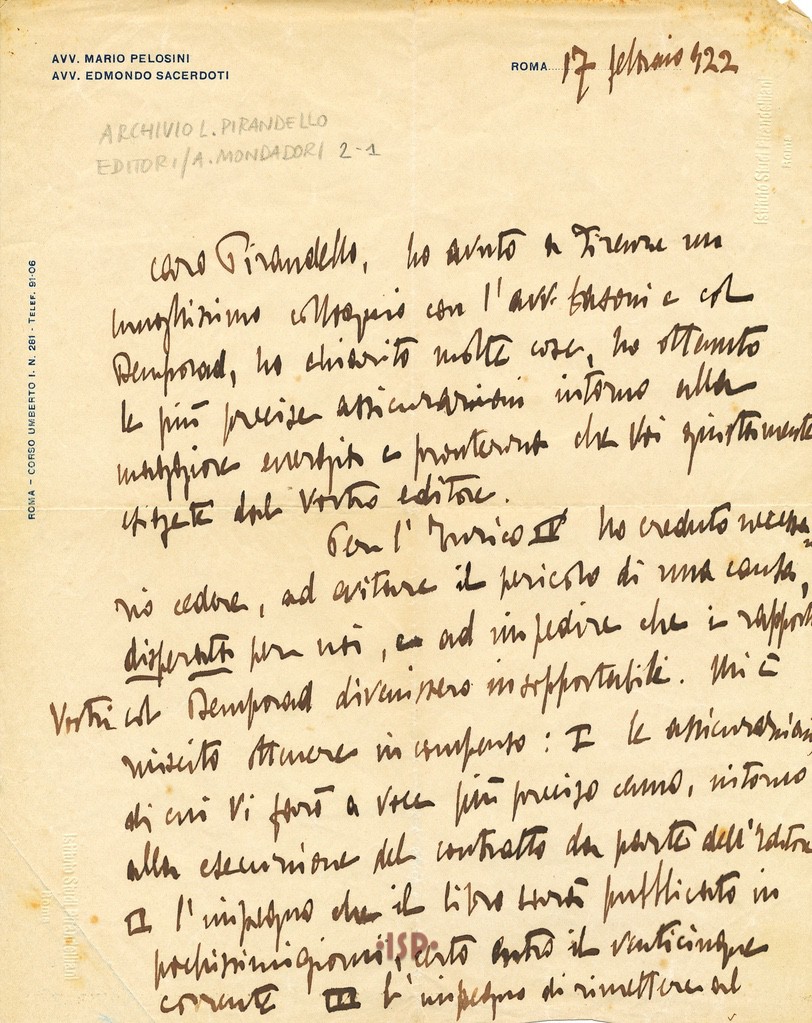 AVV. MARIO PELOSINI
AVV. EDMONDO SACERDOTI
ROMA 17 febbraio 922
ARCHIVIO L. PIRANDELLO
EDITORI/A. MONDADORI 2-1
ROMA - CORSO UMBERTO I. N. 281 - TELEF. 91-06
caro Pirandello, ho avuto a Firenze un
lunghissimo colloquio con l'avv. Fasoni e col
Bemporad, ho chiarito molte cose, ho ottenuto
le più precise assicurazioni intorno alla
maggiore energia e prontezza che Voi giustamente
esigete dal Vostro editore.
Per l'Enrico IV ho creduto necessa-
rio cedere, ad evitare il pericolo di una causa,
disperata per noi, e ad impedire che i rapporti
Vostri col Bemporad divenissero insopportabili. Mi è
riuscito ottenere in compenso: I le assicurazioni,
di cui Vi farò a voce più preciso cenno, intorno
alla esecuzione del contratto da parte dell'Editore
II l'impegno che il libro sarà pubblicato in
pochissimi giorni, certo entro il venticinque
corrente III l'impegno di rimettere al
Istituto Studi Pirandelliani
Roma
Istituto Studi Pirandelliani
Roma
•ISP•